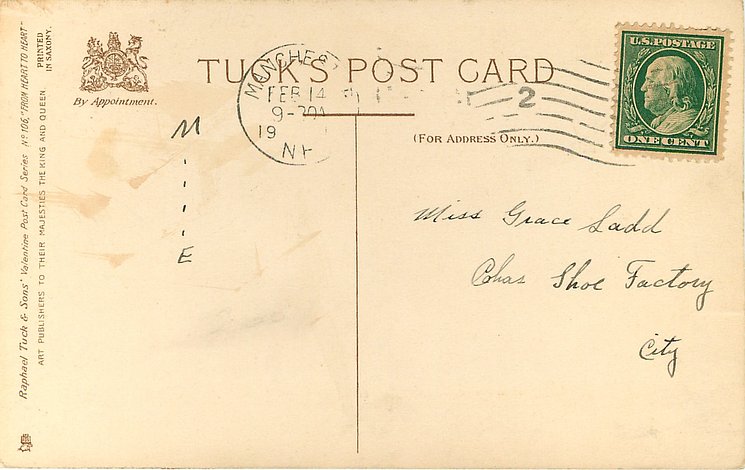 Raphael Tuck & Sons' Valentine Post Card Series Nº 106, "FROM HEART TO HEART"
ART PUBLISHERS TO THEIR MAJESTIES THE KING AND QUEEN
PRINTED
IN SAXONY.
By Appointment.
TUCK'S POST CARD
(FOR ADDRESS ONLY.)
MANCHEST
FEB 14
9-30A
19
N.H
2
U.S. POSTAGE
ONE CENT
M
E
Miss Grace Ladd
Cohas Shoe Factory
City